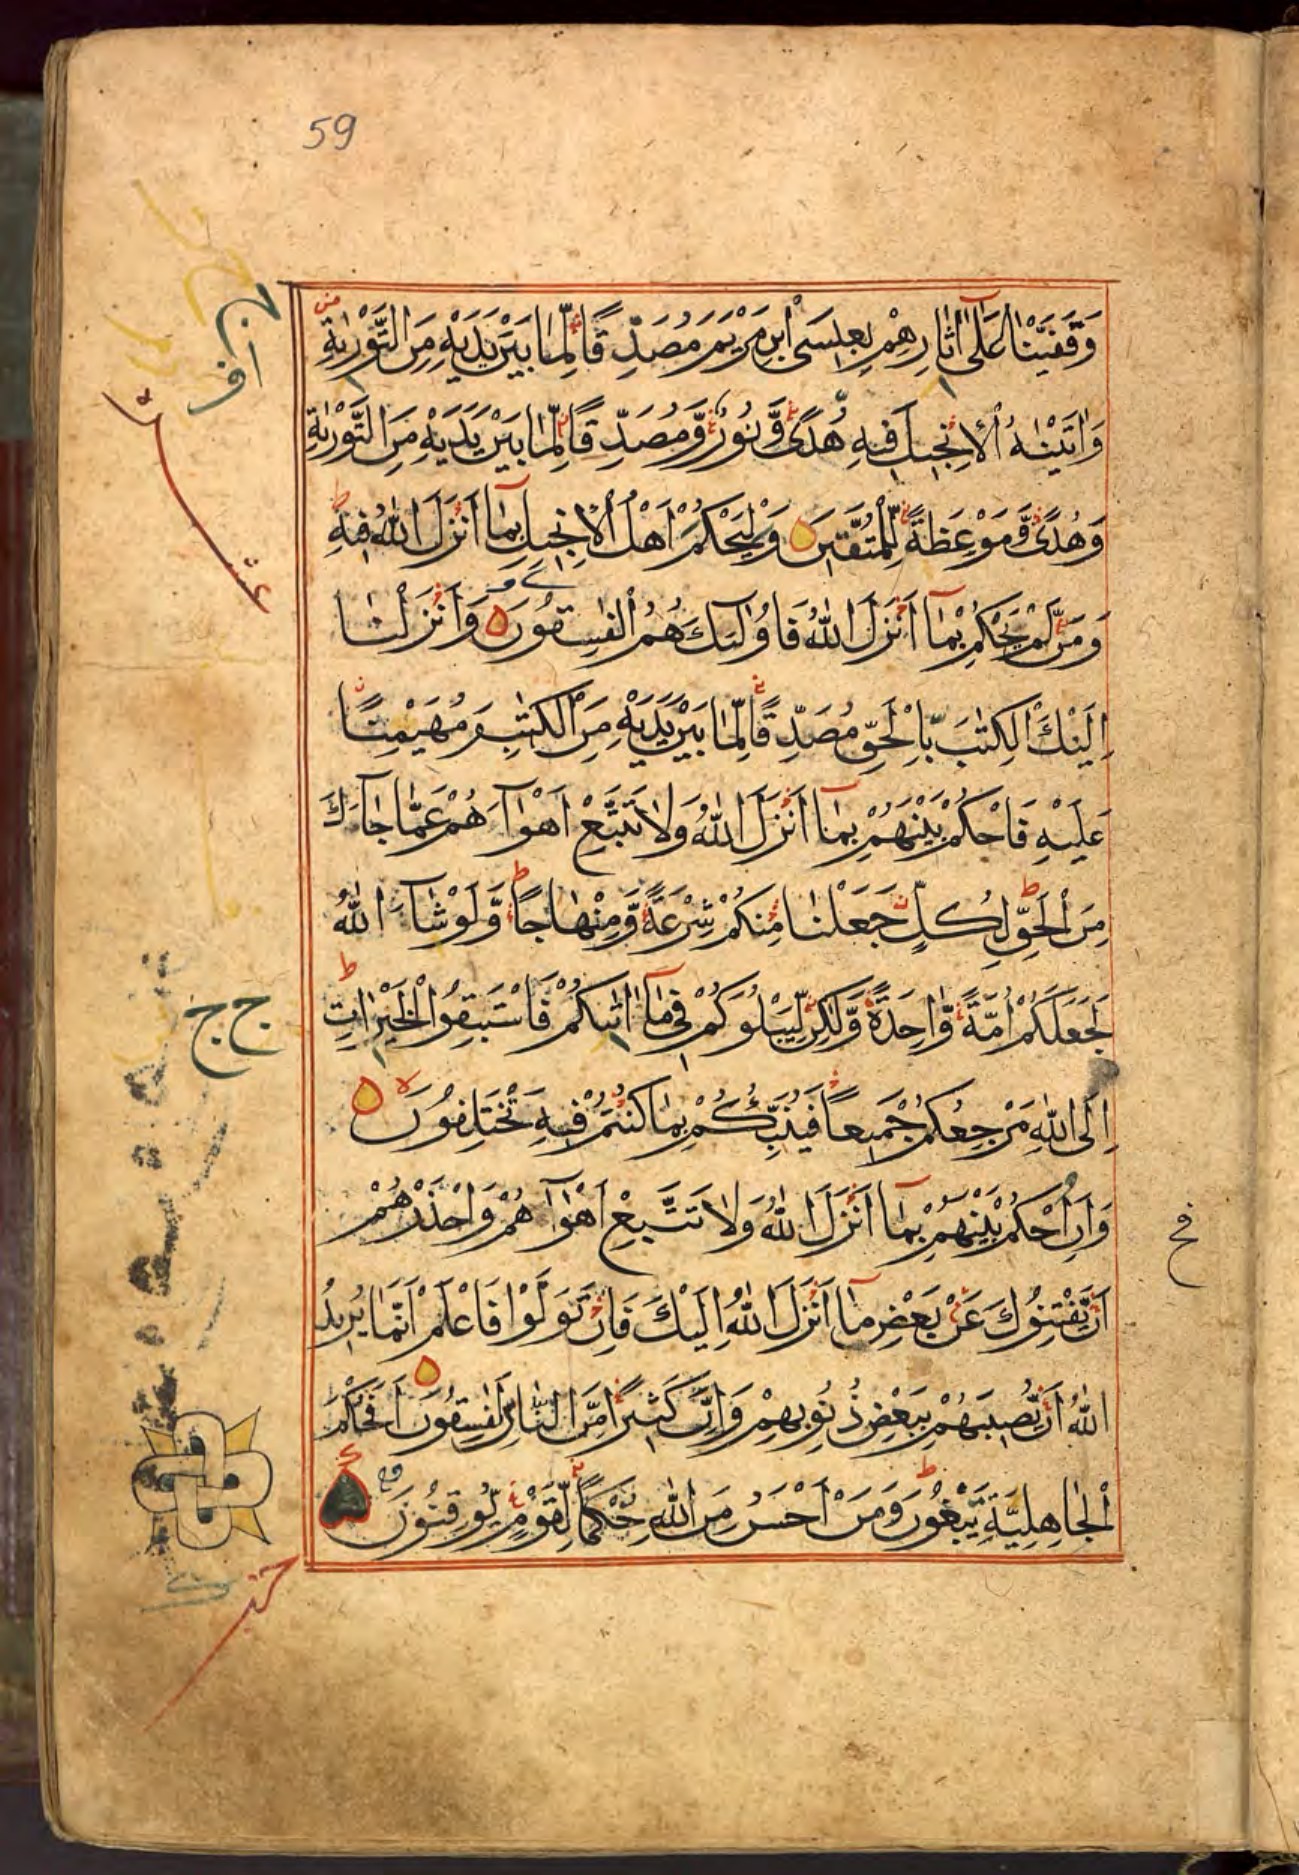 59
وَقَفَّيْنَا عَلَىٰ آثَارِهِمْ بِعِيسَى ابْنِ مَرْيَمَ مُصَدِّقًا لِمَا بَيْنَ يَدَيْهِ مِنَ التَّوْرٰيةِ
وَاٰتَيْنٰهُ الْاِنْجِيلَ فِيهِ هُدًى وَّنُورٌ وَّمُصَدِّقًا لِمَا بَيْنَ يَدَيْهِ مِنَ التَّوْرٰيةِ
وَهُدًى وَّمَوْعِظَةً لِّلْمُتَّقِينَ وَلْيَحْكُمْ اَهْلُ الْاِنْجِيلِ بِمَا اَنْزَلَ اللّٰهُ فِيهِ
وَمَنْ لَّمْ يَحْكُمْ بِمَا اَنْزَلَ اللّٰهُ فَاُولٰئِكَ هُمُ الْفٰسِقُونَ وَاَنْزَلْنَا
اِلَيْكَ الْكِتٰبَ بِالْحَقِّ مُصَدِّقًا لِّمَا بَيْنَ يَدَيْهِ مِنَ الْكِتٰبِ وَمُهَيْمِنًا
عَلَيْهِ فَاحْكُمْ بَيْنَهُمْ بِمَا اَنْزَلَ اللّٰهُ وَلَا تَتَّبِعْ اَهْوَآءَهُمْ عَمَّا جَآءَكَ
مِنَ الْحَقِّ لِكُلٍّ جَعَلْنَا مِنْكُمْ شِرْعَةً وَّمِنْهَاجًا وَّلَوْ شَآءَ اللّٰهُ
لَجَعَلَكُمْ اُمَّةً وَّاحِدَةً وَّلٰكِنْ لِّيَبْلُوَكُمْ فِي مَآ اٰتٰىكُمْ فَاسْتَبِقُوا الْخَيْرَاتِ
اِلَى اللّٰهِ مَرْجِعُكُمْ جَمِيعًا فَيُنَبِّئُكُمْ بِمَا كُنْتُمْ فِيهِ تَخْتَلِفُونَ
وَاَنِ احْكُمْ بَيْنَهُمْ بِمَآ اَنْزَلَ اللّٰهُ وَلَا تَتَّبِعْ اَهْوَآءَهُمْ وَاحْذَرْهُمْ
اَنْ يَّفْتِنُوكَ عَنْ بَعْضِ مَآ اَنْزَلَ اللّٰهُ اِلَيْكَ فَاِنْ تَوَلَّوْا فَاعْلَمْ اَنَّمَا يُرِيدُ
اللّٰهُ اَنْ يُّصِيبَهُمْ بِبَعْضِ ذُنُوبِهِمْ وَاِنَّ كَثِيرًا مِّنَ النَّاسِ لَفٰسِقُونَ اَفَحُكْمَ
الْجَاهِلِيَّةِ يَبْغُونَ وَمَنْ اَحْسَنُ مِنَ اللّٰهِ حُكْمًا لِّقَوْمٍ يُّوقِنُونَ